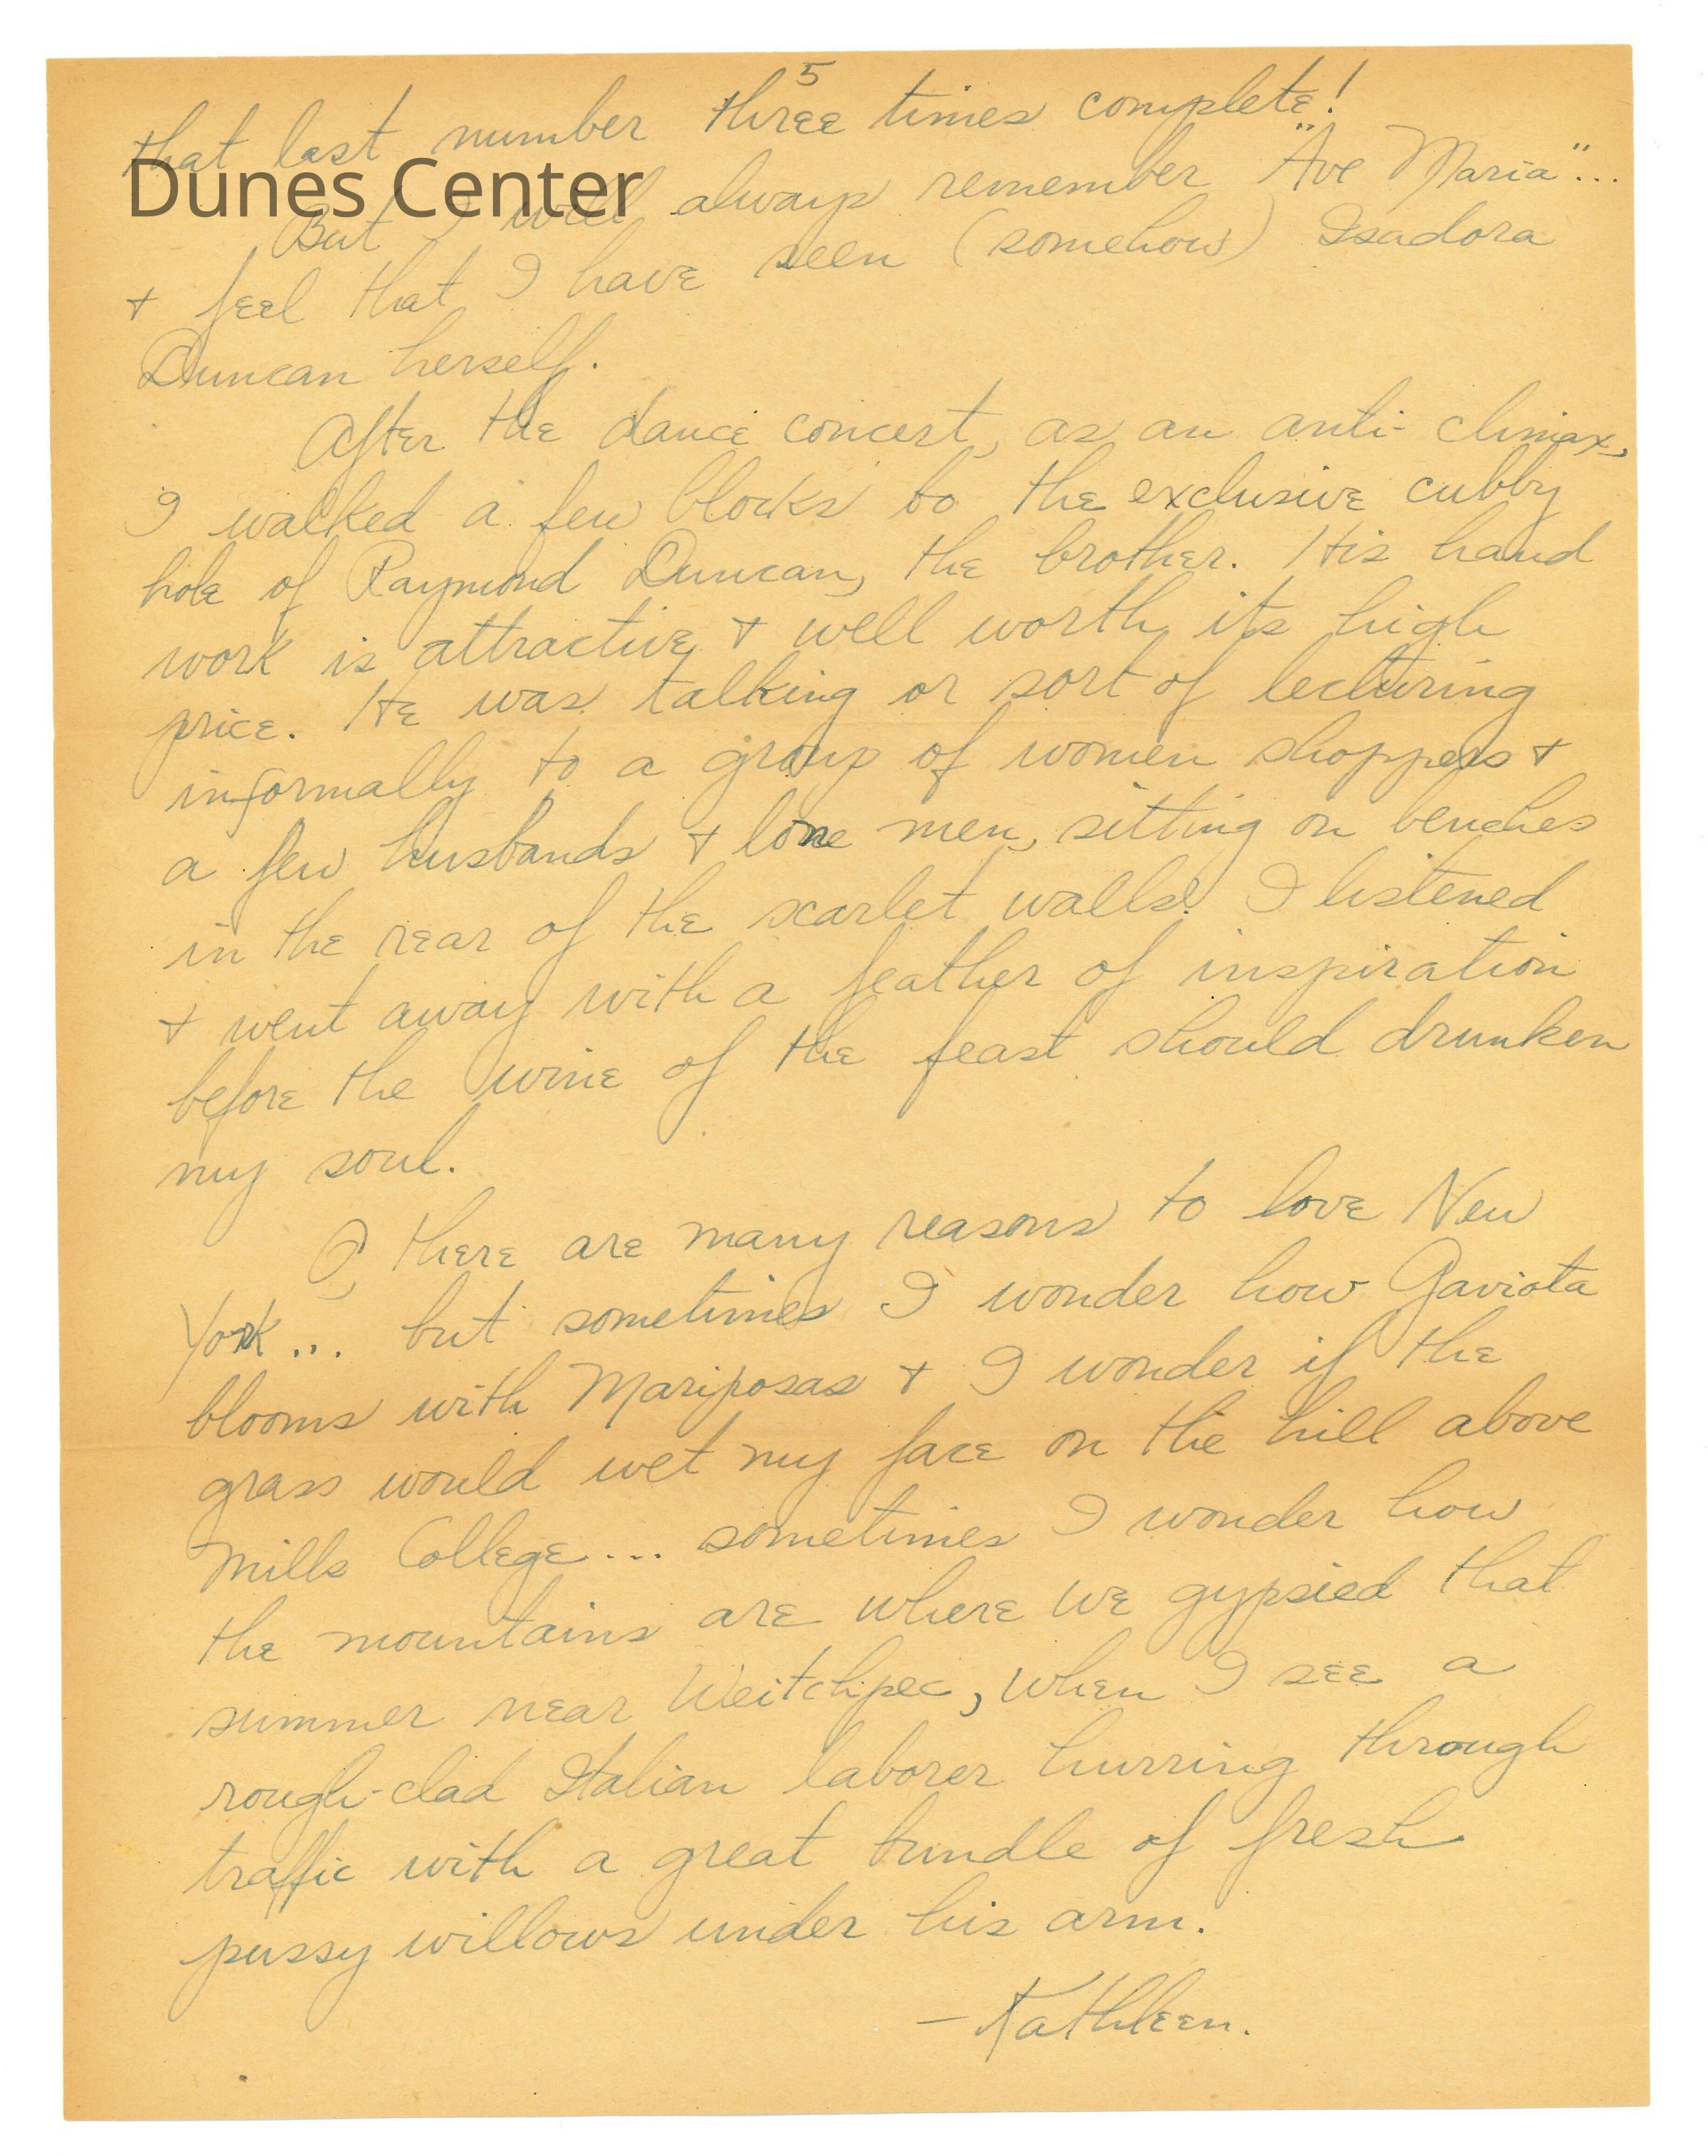 5
that last number three times complete!
Dunes Center
But I will always remember "Ave Maria"...
+ feel that I have seen (somehow) Isadora
Duncan herself.
After the dance concert, as an anti-climax,
I walked a few blocks to the exclusive cubby
hole of Raymond Duncan, the brother. His hand
work is attractive + well worth its high
price. He was talking or sort of lecturing
informally to a group of women shoppers +
a few husbands + lone men, sitting on benches
in the rear of the scarlet walls. I listened
+ went away with a feather of inspiration
before the wine of the feast should drunken
my soul.
O, there are many reasons to love New
York... but sometimes I wonder how Gaviota
blooms with Mariposas + I wonder if the
grass would wet my face on the hill above
Mills College... sometimes I wonder how
the mountains are where we gypsied that
summer near Weitchpec, when I see a
rough-clad Italian laborer hurring through
traffic with a great bundle of fresh
pussy willows under his arm.
- Kathleen.